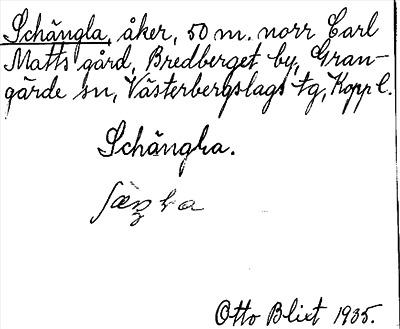 Schängla, åker, 50 m. norr Carl
Matts gård, Bredberget by, Gran-
gärde sn, Västerbergslags tg, Kopp l.
Schängla.
Otto Blixt 1935.